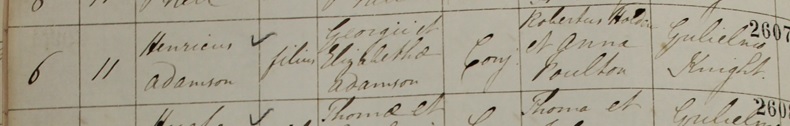 Robertus
Georgii et
2607
Henricus ✓
filius
Elizabethæ
Conj
et Anna
Gulielmo
6
11
Adamson
Adamson
Poulton
Knight
Thomæ et
Thoma et
260